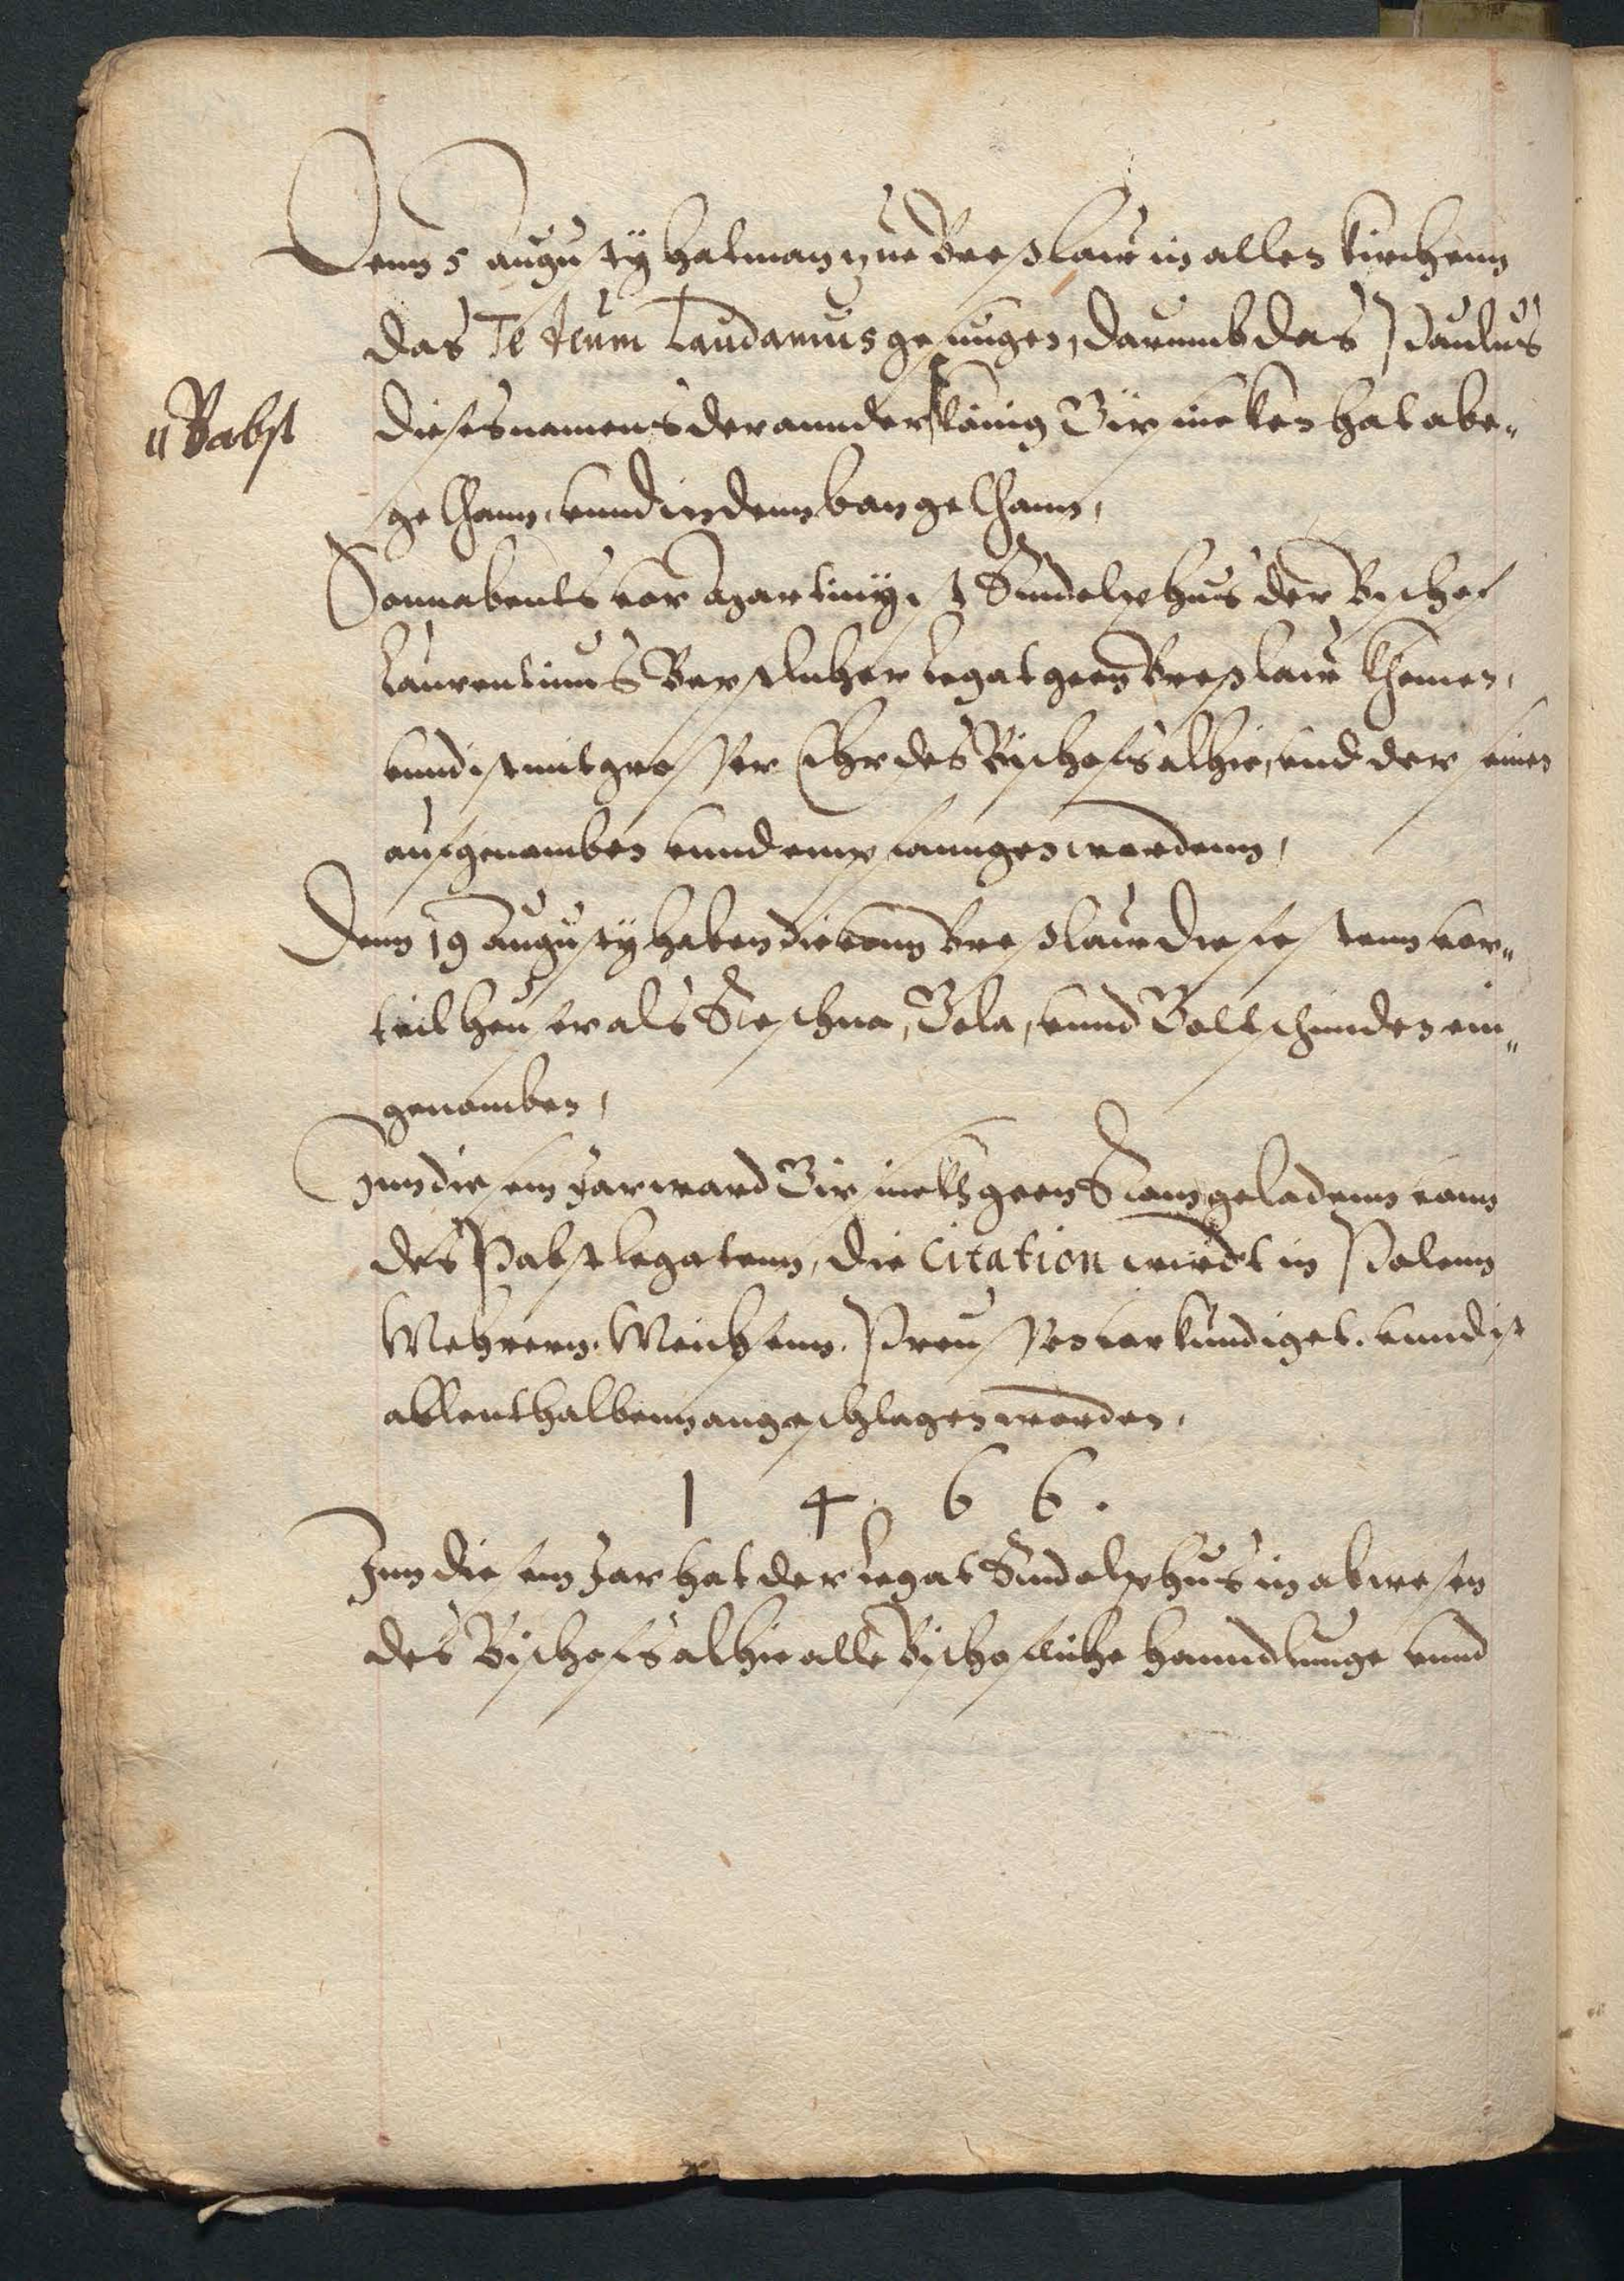 Denn 5 Augusty hat man zue Breslaw in allen Kirchenn
das Te deum Laudamus gesungen, darumb das Paulus
dieses namens der annder König Girsicken hat abe-
" Babst
gethann, vnnd in denn ban gethann,
Sonnabents vor Martiny, ist Rudolphus der Bischof
Laurentinus Bapstlicher legat geen Breslaw khomen,
vnnd ist mit grosser Ehr des Bischofs alhie, vnd der seinen
aufgenomben vnnd empfanngen wordenn,
Denn 19 Augusty haben die vonn Breslaw die festenn vor-
teil heuser als Steschna, Bela, vnnd Boltschinden ein-
genomben,
Inn diesem Jar ward Girsick geen Rom geladenn vonn
des Pabst legatenn, die Citation wirdt in Polenn
Mehrern. Meichsenn. Preussen verkundiget. vnnd ist
allenthalbenn angeschlagen worden.
1 4 6 6.
Inn diesem Jar hat der legat Rudolphus in abwesen
des Bischofs alhie alle Bischofliche hanndlunge vnnd